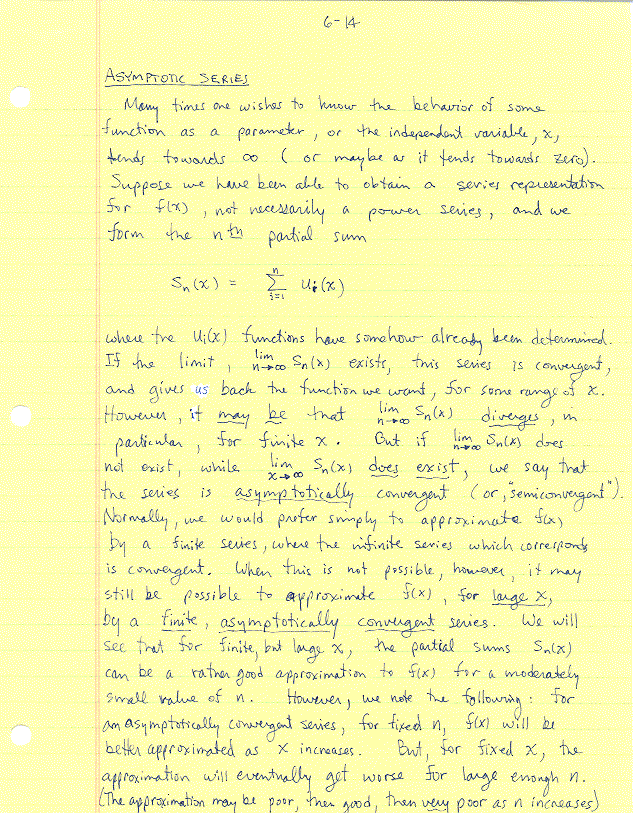 6-14
ASYMPTOTIC SERIES
Many times one wishes to know the behavior of some
function as a parameter, or the independent variable, x,
tends towards ∞ (or maybe as it tends towards zero).
Suppose we have been able to obtain a series representation
for f(x), not necessarily a power series, and we
form the nth partial sum
Sn(x) = n Σ i=1 Ui(x)
where the Ui(x) functions have somehow already been determined.
If the limit, lim n→∞ Sn(x) exists, this series is convergent,
and gives us back the function we want, for some range of x.
However, it may be that lim n→∞ Sn(x) diverges, in
particular, for finite x. But if lim n→∞ Sn(x) does
not exist, while lim x→∞ Sn(x) does exist, we say that
the series is asymptotically convergent (or, "semiconvergent").
Normally, we would prefer simply to approximate f(x)
by a finite series, where the infinite series which corresponds
is convergent. When this is not possible, however, it may
still be possible to approximate f(x), for large x,
by a finite, asymptotically convergent series. We will
see that for finite, but large x, the partial sums Sn(x)
can be a rather good approximation to f(x) for a moderately
small value of n. However, we note the following: for
an asymptotically convergent series, for fixed n, f(x) will be
better approximated as x increases. But, for fixed x, the
approximation will eventually get worse for large enough n.
(The approximation may be poor, then good, then very poor as n increases)